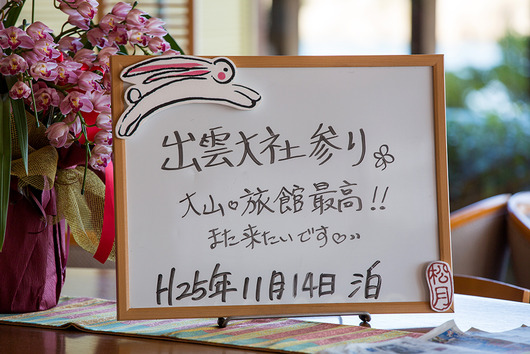 出雲大社参り
大山♡旅館最高!!
また来たいです♡〃
H25年11月14日 泊
松月